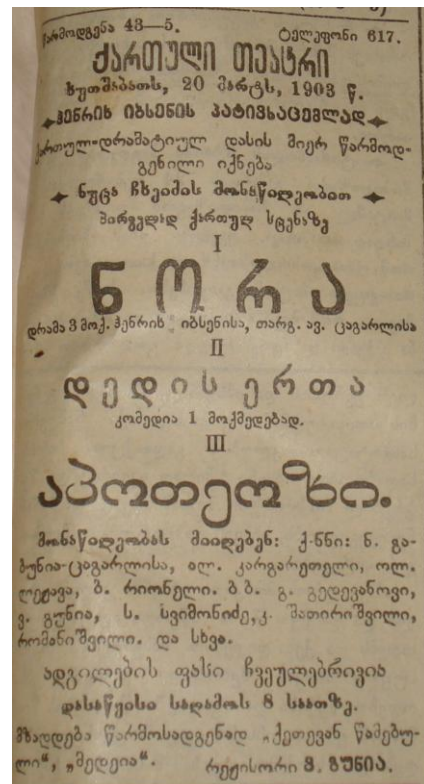 წარმოდგენა 43—5. ტელეფონი 617.
ქართული თეატრი
ხუთშაბათს, 20 მარტს, 1903 წ.
ჰენრიხ იბსენის პატივსაცემლად
ქართულ-დრამატიულ დასის მიერ წარმოდ-
გენილი იქნება
ნუცა ჩხეიძის მონაწილეობით
პირველად ქართულ სცენაზე
I
ნორა
დრამა 3 მოქ. ჰენრიხ იბსენისა, თარგ. ავ. ცაგარლისა
II
დედის ერთა
კომედია 1 მოქმედებად.
III
აპოთეოზი.
მონაწილეობას მიიღებენ: ქ-ნნი: ნ. გა-
ბუნია-ცაგარლისა, ალ. კარგარეთელი, ოლ.
ლეჟავა, ბ. რიონელი. ბ ბ. გ. გედევანოვი,
ვ. გუნია, ს. სვიმონიძე, კ. შათირიშვილი,
რომანიშვილი. და სხვა.
ადგილების ფასი ჩვეულებრივია
დასაწყისი საღამოს 8 საათზე.
მზადდება წარმოსადგენად „ქეთევან წამებუ-
ლი“, „მედეია“. რეჟისორი ვ. გუნია.